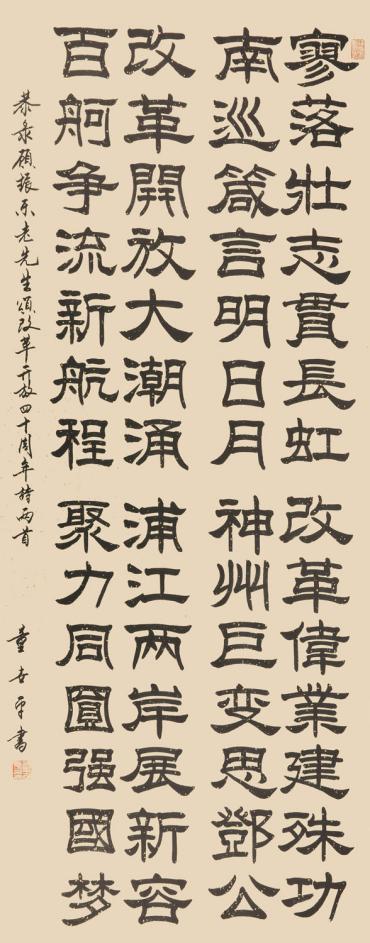 寥落壮志貫長虹 改革偉業建殊功
南巡箴言明日月 神州巨变思鄧公
改革開放大潮涌 浦江两岸展新容
百舸争流新航程 聚力同圓强國梦
恭录顾振乐老先生颂改革开放四十周年诗两首
童世平書